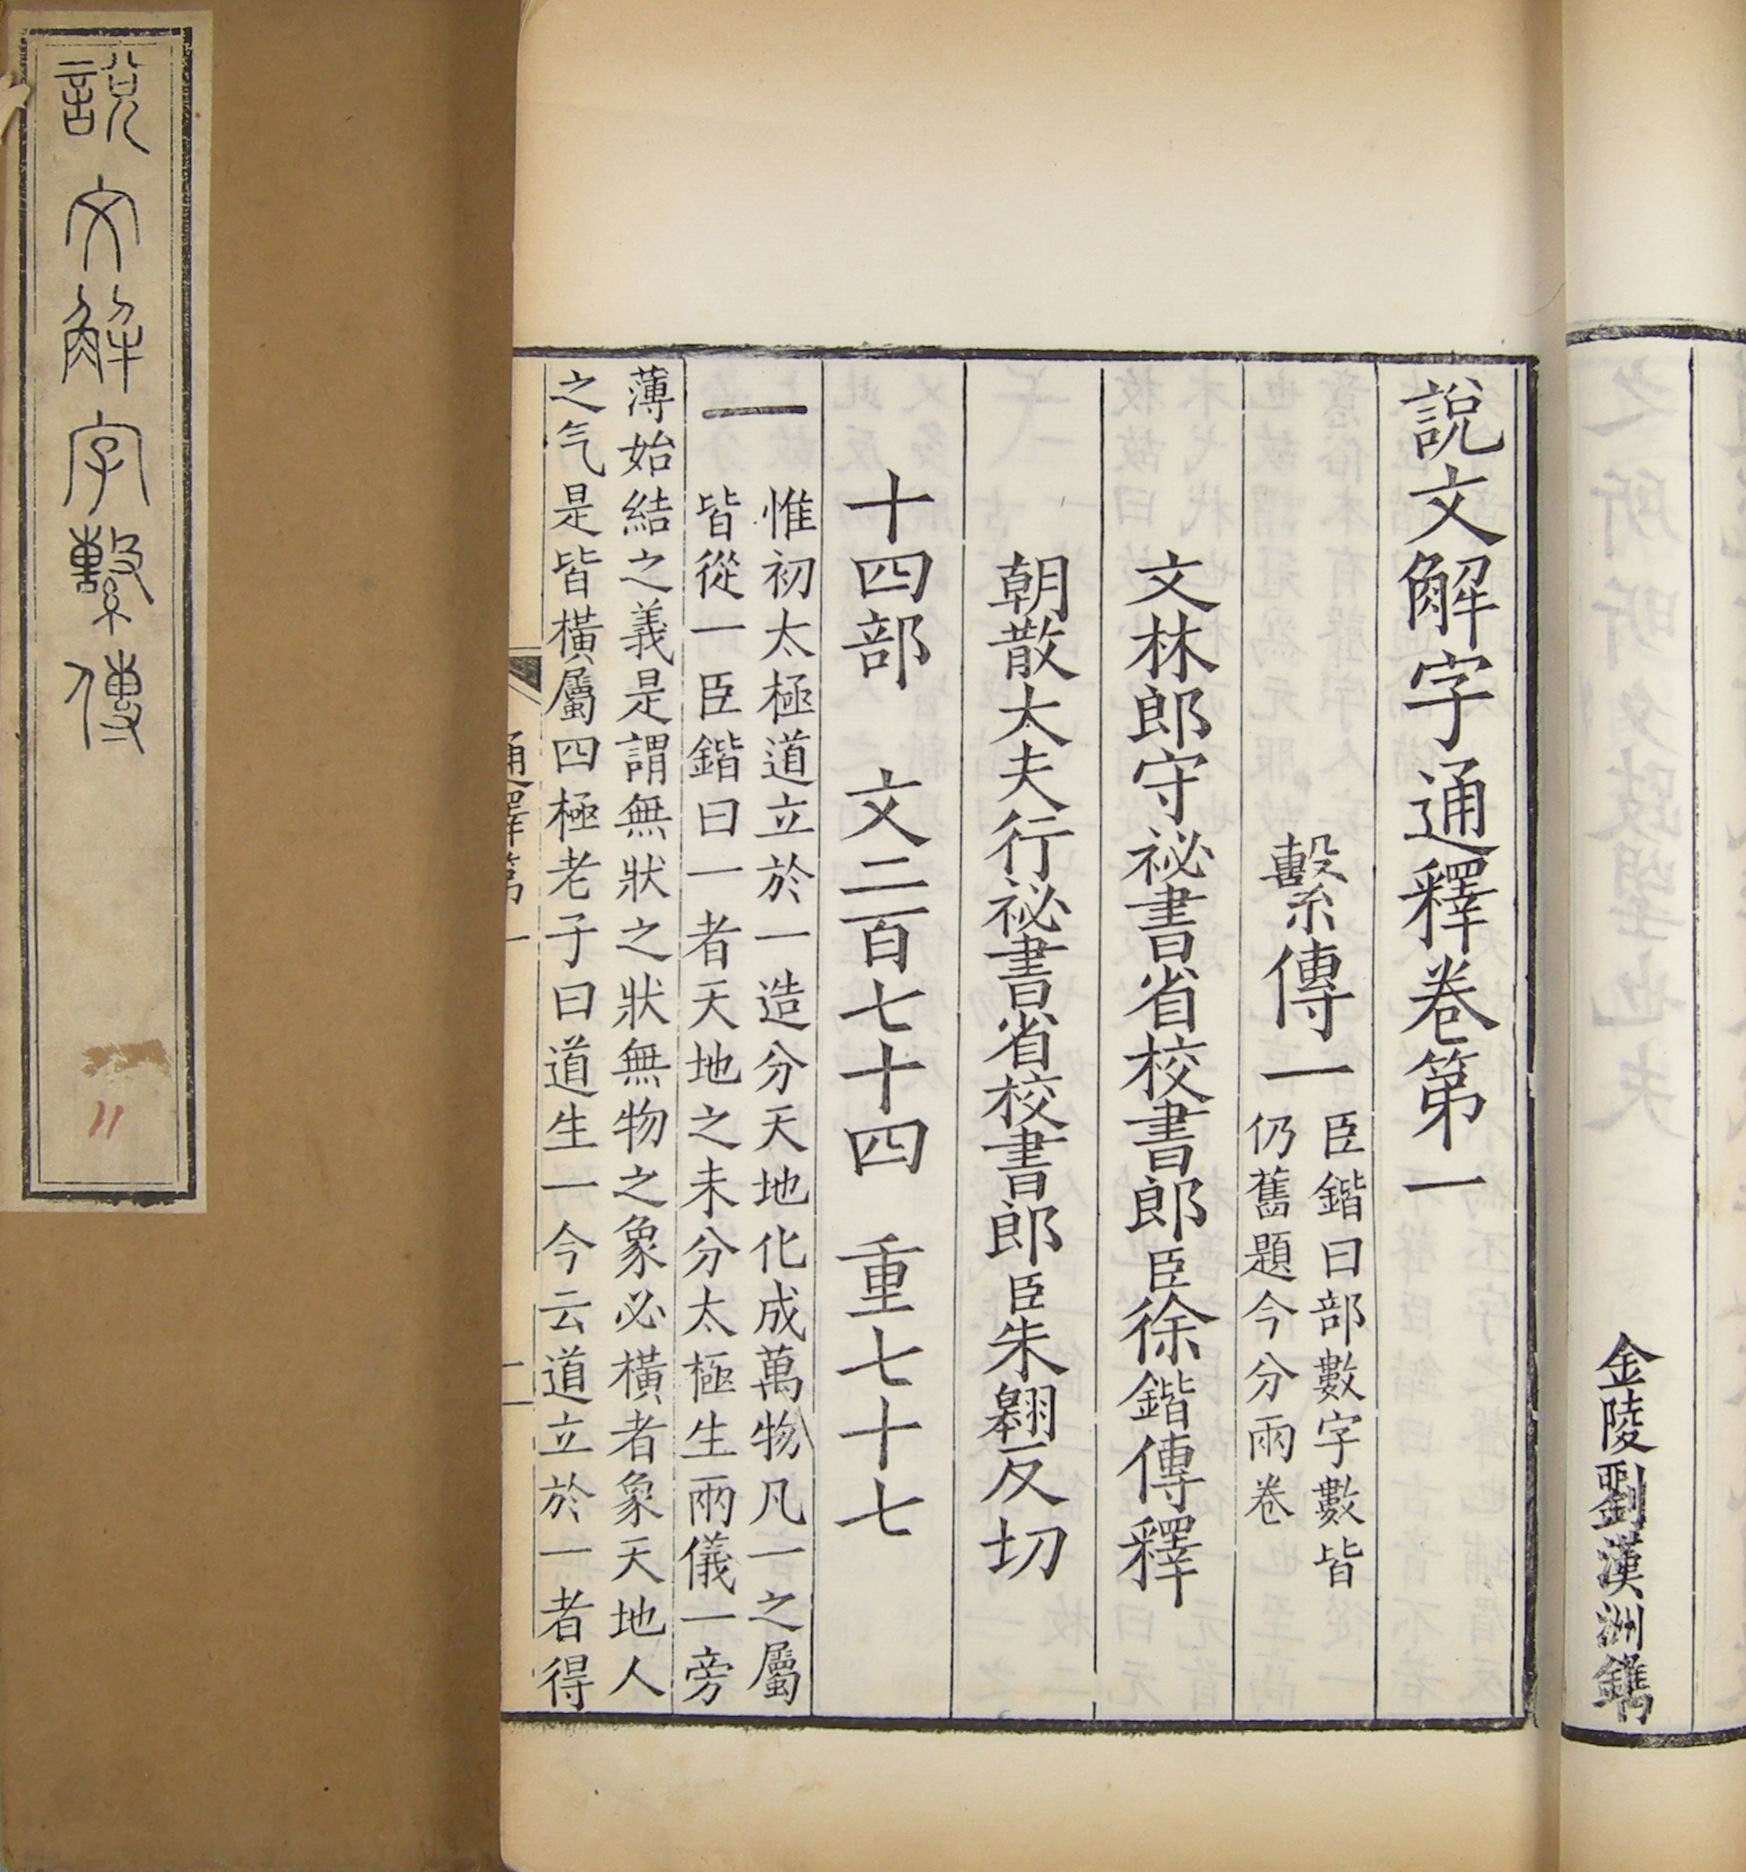 金陵劉漢洲鐫
說文解字通釋卷第一
繫傳一
臣鍇曰部數字數皆
仍舊題今分兩卷
文林郎守祕書省校書郎臣徐鍇傳釋
朝散大夫行祕書省校書郎臣朱翱反切
十四部 文二百七十四 重七十七
一
惟初太極道立於一造分天地化成萬物凡一之屬
皆從一臣鍇曰一者天地之未分太極生兩儀一旁
薄始結之義是謂無狀之狀無物之象必橫者象天地人
之气是皆橫屬四極老子曰道生一今云道立於一者得
通釋第一
二
說文解字繫傳
11